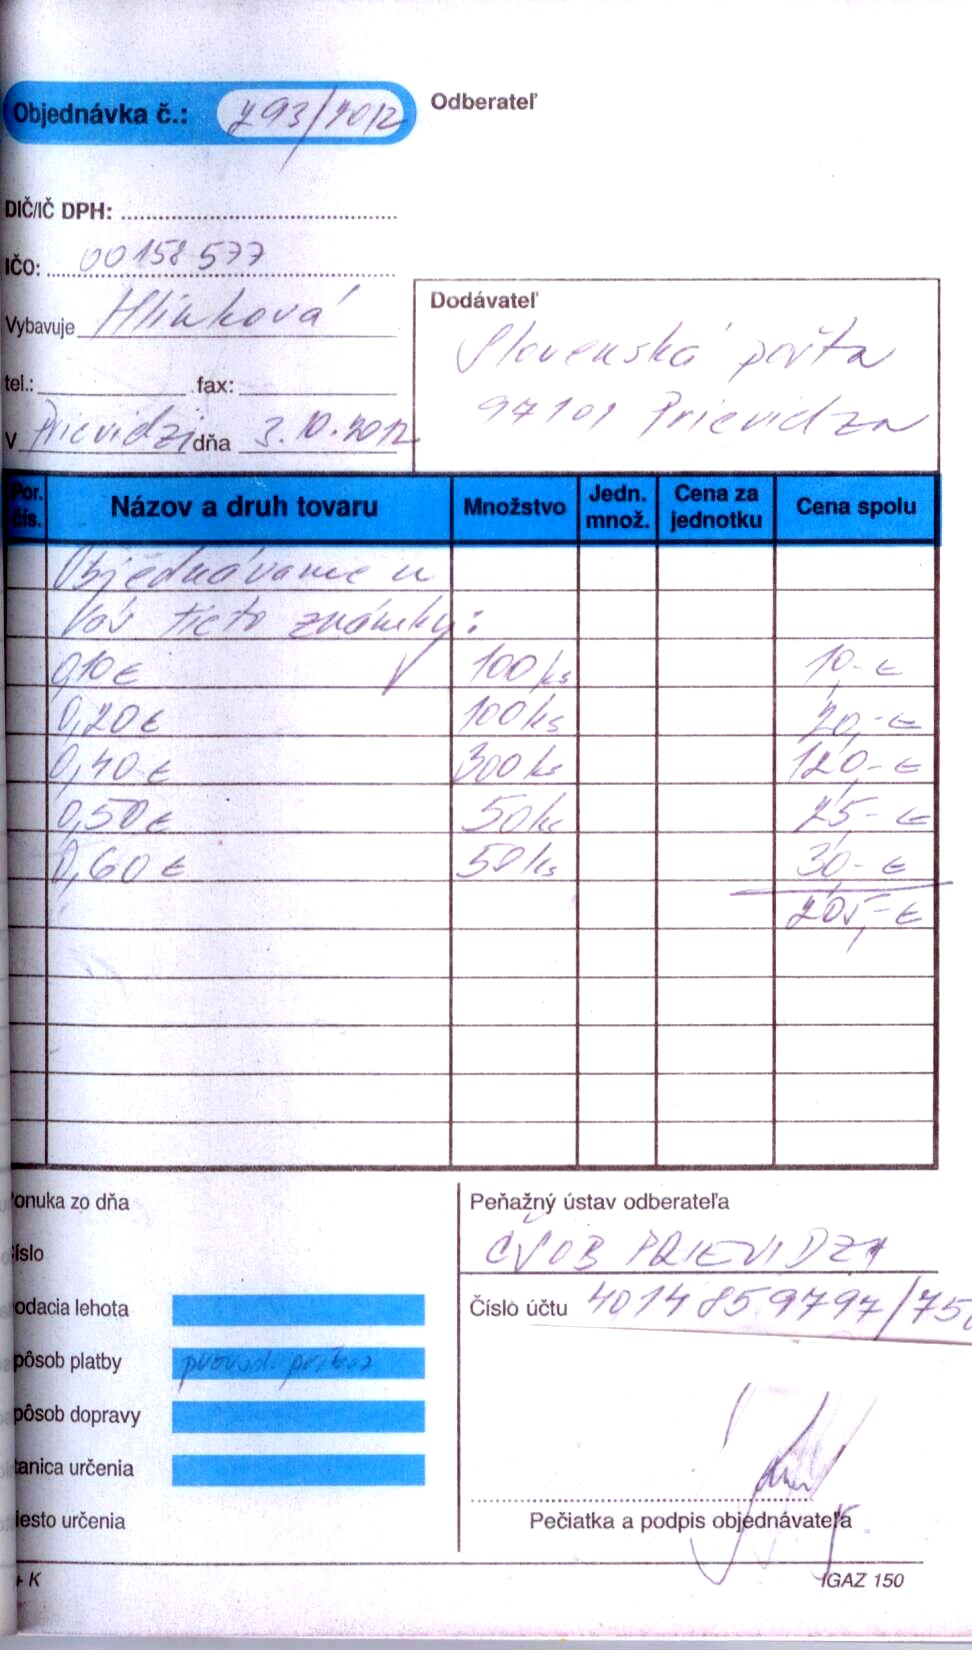 Objednávka č.: 293/2012
Odberateľ
DIČ/IČ DPH:
IČO: 00158577
Vybavuje Hlinková
tel.: fax:
V Prievidzi dňa 3.10.2012
Dodávateľ
Slovenská pošta
97101 Prievidza
Por. čís. Názov a druh tovaru Množstvo Jedn. množ. Cena za jednotku Cena spolu
Objednávame u
Vás tieto známky:
0,10 € 100 ks 10,- €
0,20 € 100 ks 20,- €
0,40 € 300 ks 120,- €
0,50 € 50 ks 25,- €
0,60 € 50 ks 30,- €
205,- €
onuka zo dňa
íslo
odacia lehota
pôsob platby prevod. príkaz
pôsob dopravy
tanica určenia
iesto určenia
Peňažný ústav odberateľa
ČSOB PRIEVIDZA
Číslo účtu 4014859797/750
Pečiatka a podpis objednávateľa
+ K
IGAZ 150